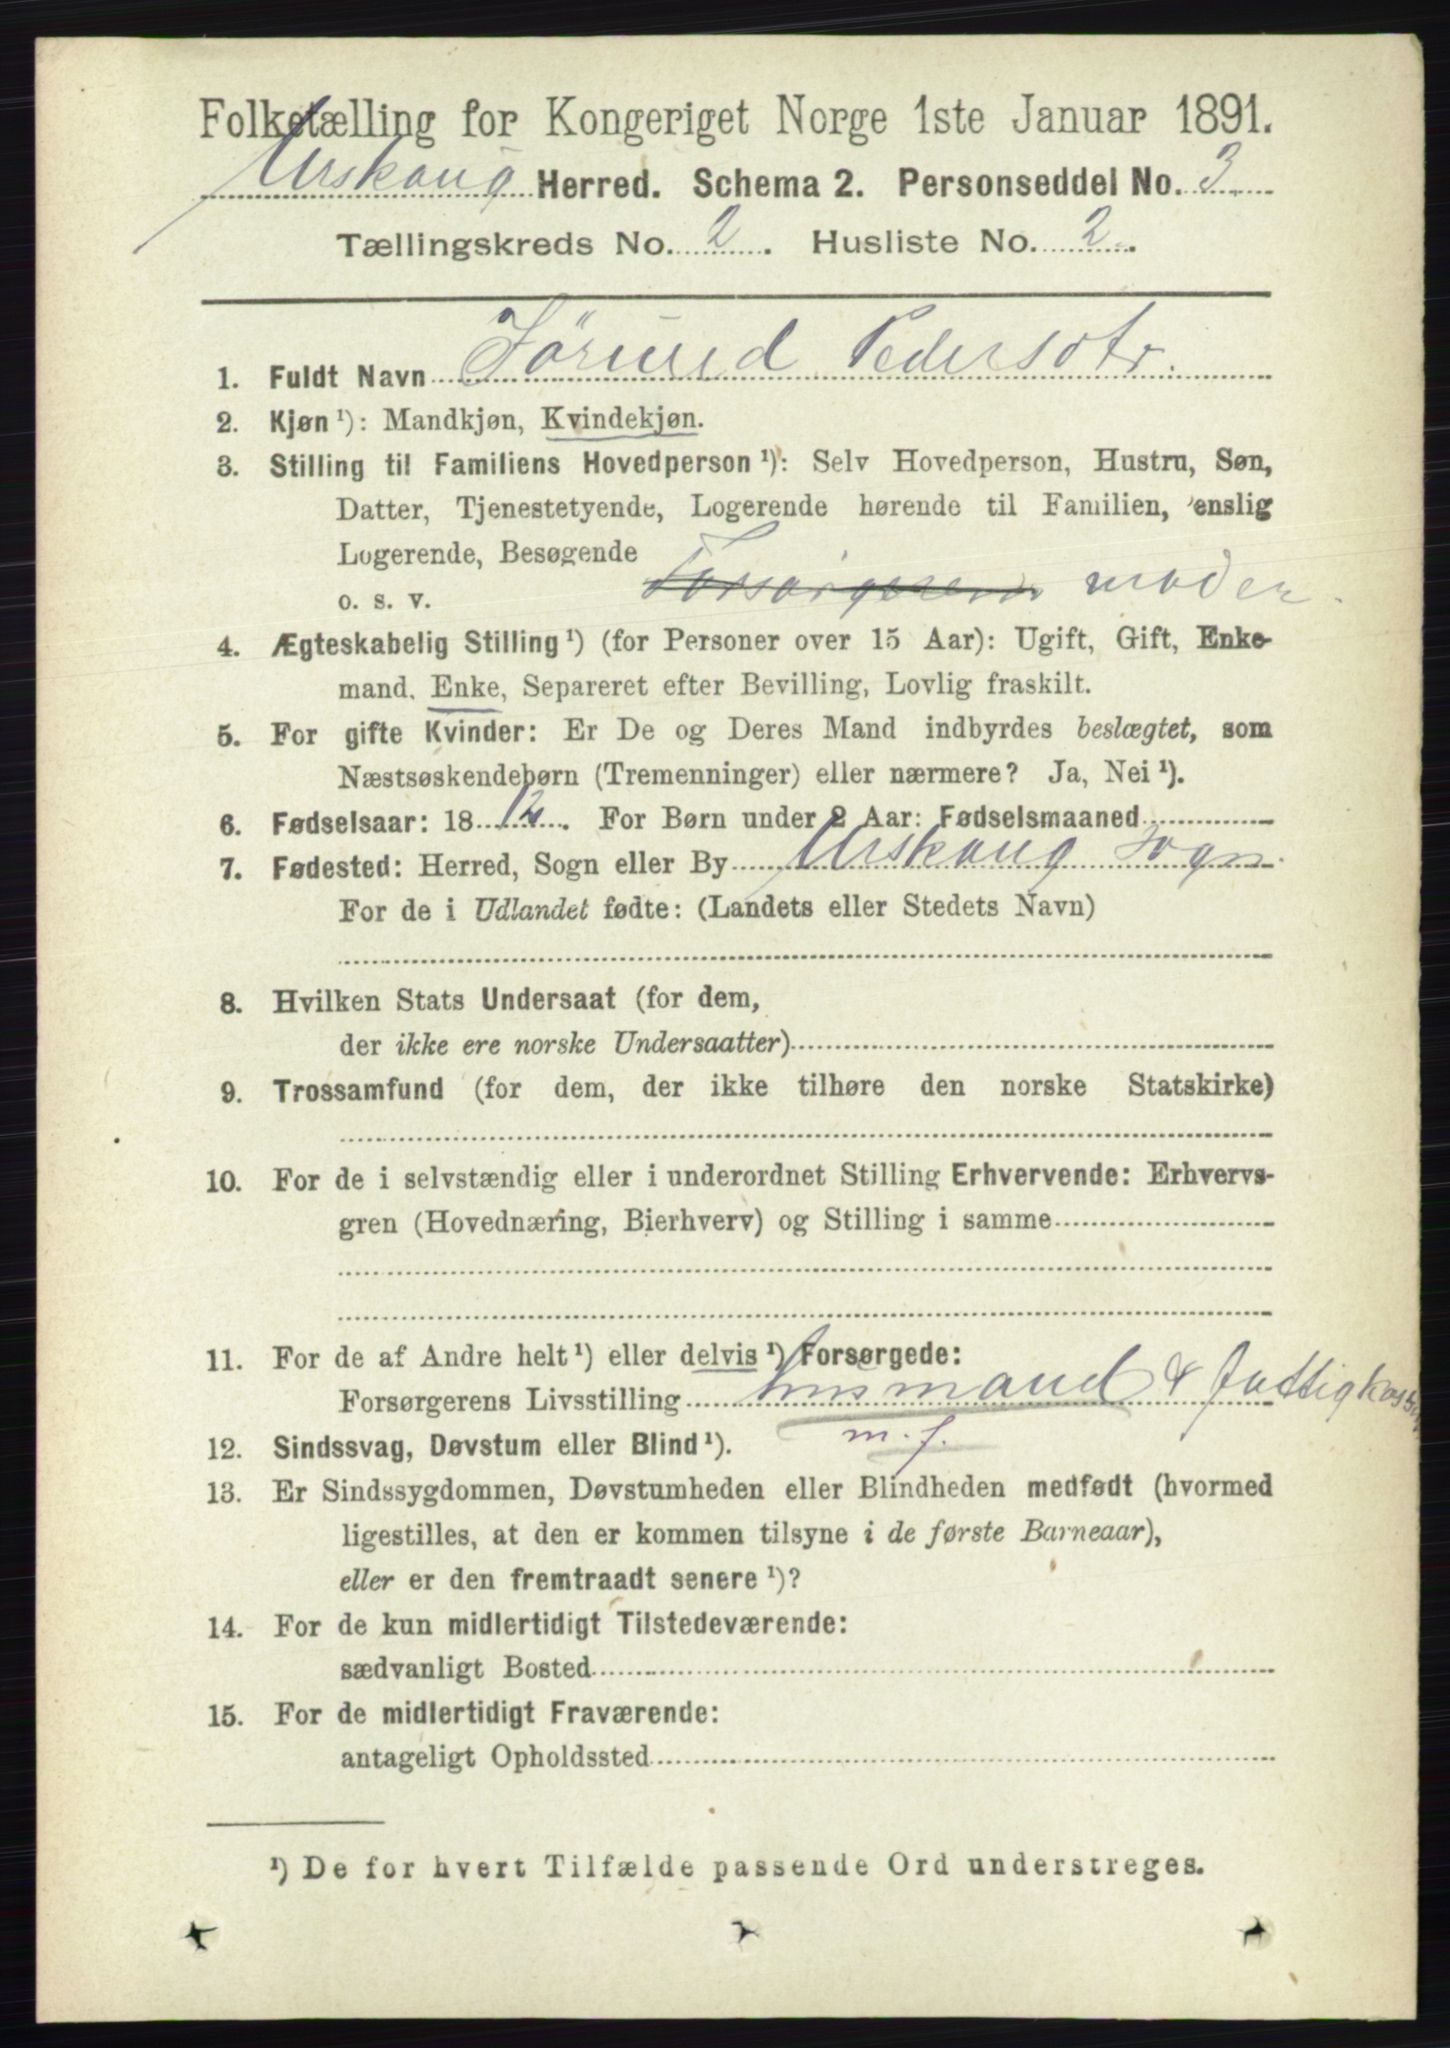 Folketælling for Kongeriget Norge 1ste Januar 1891.
Urskoug Herred. Schema 2. Personseddel No. 3
Tællingskreds No. 2. Husliste No. 2.
1. Fuldt Navn Jörund Pedersdtr.
2. Kjøn ¹): Mandkjøn, Kvindekjøn.
3. Stilling til Familiens Hovedperson ¹): Selv Hovedperson, Hustru, Søn,
Datter, Tjenestetyende, Logerende hørende til Familien, enslig
Logerende, Besøgende
o. s. v. moder.
4. Ægteskabelig Stilling ¹) (for Personer over 15 Aar): Ugift, Gift, Enke-
mand, Enke, Separeret efter Bevilling, Lovlig fraskilt.
5. For gifte Kvinder: Er De og Deres Mand indbyrdes beslægtet, som
Næstsøskendebørn (Tremenninger) eller nærmere? Ja, Nei ¹).
6. Fødselsaar: 1812. For Børn under 2 Aar: Fødselsmaaned
7. Fødested: Herred, Sogn eller By Urskoug Sogn.
For de i Udlandet fødte: (Landets eller Stedets Navn)
8. Hvilken Stats Undersaat (for dem,
der ikke ere norske Undersaatter)
9. Trossamfund (for dem, der ikke tilhøre den norske Statskirke)
10. For de i selvstændig eller i underordnet Stilling Erhvervende: Erhvervs-
gren (Hovednæring, Bierhverv) og Stilling i samme
11. For de af Andre helt ¹) eller delvis ¹) Forsørgede:
Forsørgerens Livsstilling Husmand & fattigkassen
m. f.
12. Sindssvag, Døvstum eller Blind ¹).
13. Er Sindssygdommen, Døvstumheden eller Blindheden medfødt (hvormed
ligestilles, at den er kommen tilsyne i de første Barneaar),
eller er den fremtraadt senere ¹)?
14. For de kun midlertidigt Tilstedeværende:
sædvanligt Bosted
15. For de midlertidigt Fraværende:
antageligt Opholdssted
¹) De for hvert Tilfælde passende Ord understreges.